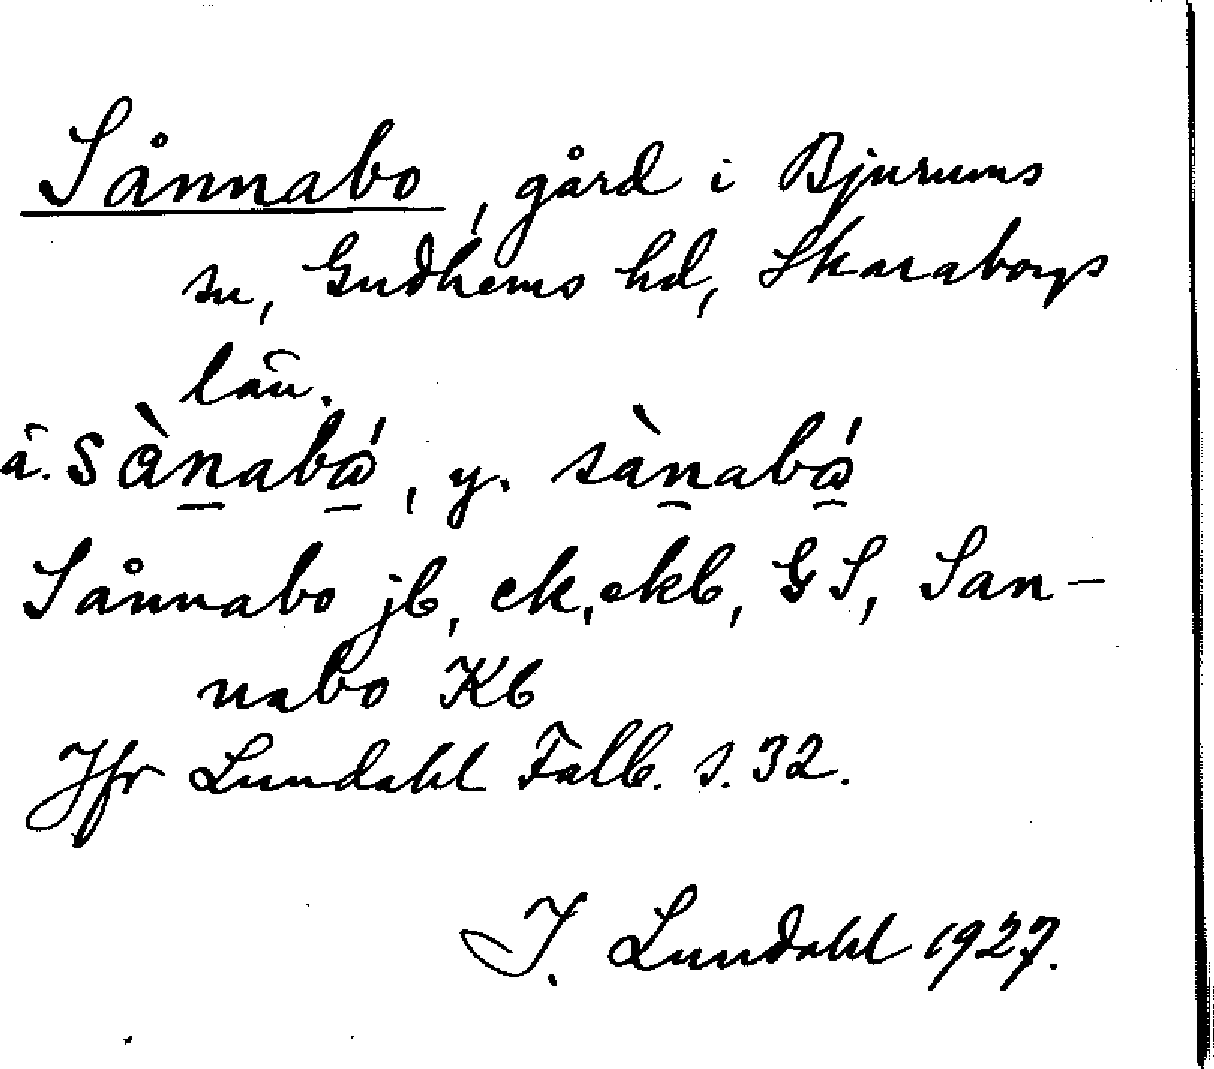 Sånnabo, gård i Bjurums
sn, Gudhems hd, Skaraborgs
län.
ä. sànabó, y. sànabó
Sånnabo jb, ek, ekb, GS, San-
nabo Kb
Jfr Lundahl Falb. s. 32.
I. Lundahl 1927.